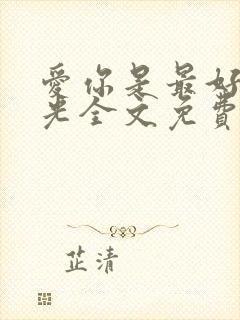 愛你是最好
光全文免費
芷清